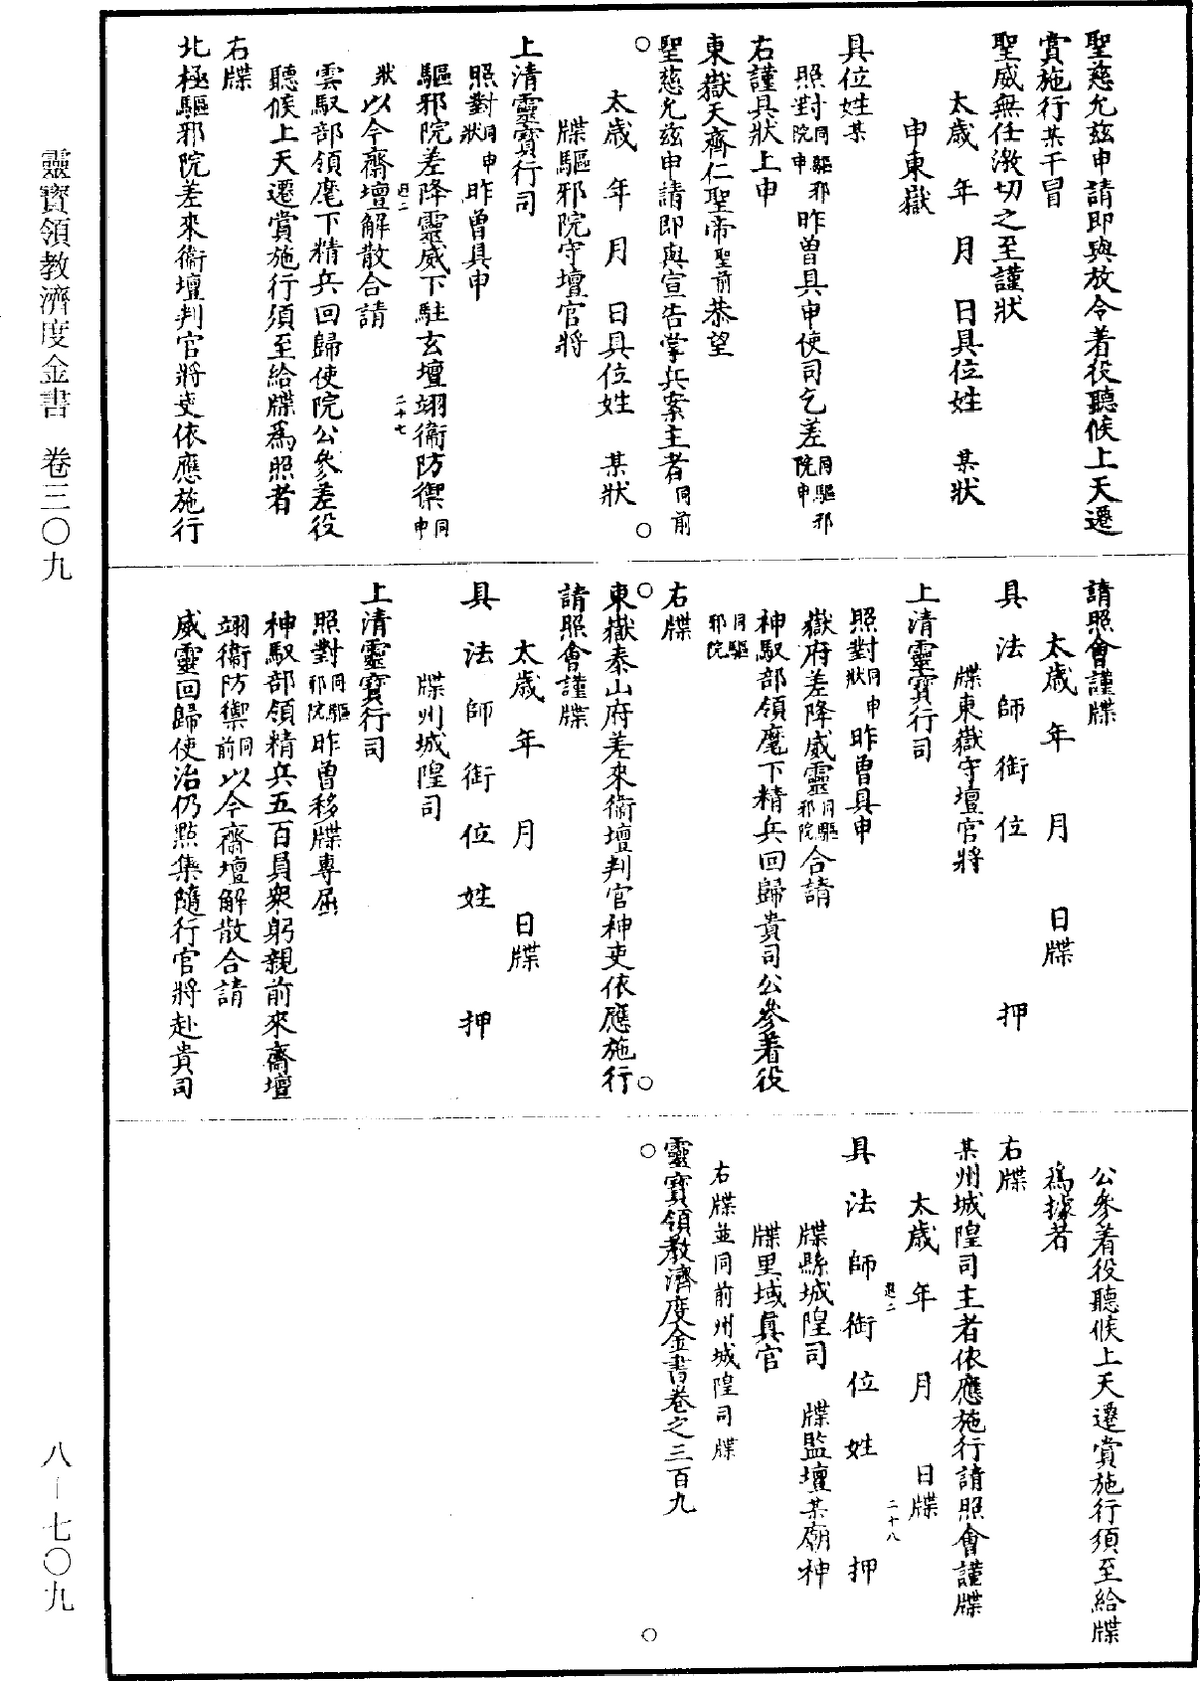 聖慈允茲申請即與放令着役聽候上天遷
賞施行某干冒
聖威無任激切之至謹狀
太歲　年　月　日具位姓　某狀
申東嶽
具位姓某
照對同驅邪院申昨曾具申使司乞差同驅邪院申
右謹具狀上申
東嶽天齊仁聖帝聖前恭望
聖慈允茲申請即與宣告掌兵案主者同前
太歲　年　月　日具位姓　某狀
牒驅邪院守壇官將
上清靈寶行司
照對同申狀昨曾具申
驅邪院差降靈威下駐玄壇翊衞防禦同申
狀以今齋壇解散合請
二十七
雲馭部領麾下精兵回歸使院公參差役
聽候上天遷賞施行須至給牒爲照者
右牒
北極驅邪院差來衞壇判官將吏依應施行
請照會謹牒
太歲　年　月　日牒
具法師銜位　押
牒東嶽守壇官將
上清靈寶行司
照對同申狀昨曾具申
嶽府差降威靈同驅邪院合請
神馭部領麾下精兵回歸貴司公參着役
同驅邪院
右牒
東嶽泰山府差來衞壇判官神吏依應施行
請照會謹牒
太歲　年　月　日牒
具法師銜位姓　押
牒州城隍司
上清靈寶行司
照對同驅邪院昨曾移牒專屈
神馭部領精兵五百員衆躬親前來齋壇
翊衞防禦同前以今齋壇解散合請
威靈回歸使治仍點集隨行官將赴貴司
公參着役聽候上天遷賞施行須至給牒
爲據者
右牒
某州城隍司主者依應施行請照會謹牒
太歲　年　月　日牒
二十八
具法師銜位姓　押
牒縣城隍司　牒監壇某廟神
牒里域真官
右牒並同前州城隍司牒
靈寶領教濟度金書卷之三百九
靈寶領教濟度金書　卷三〇九
八—七〇九